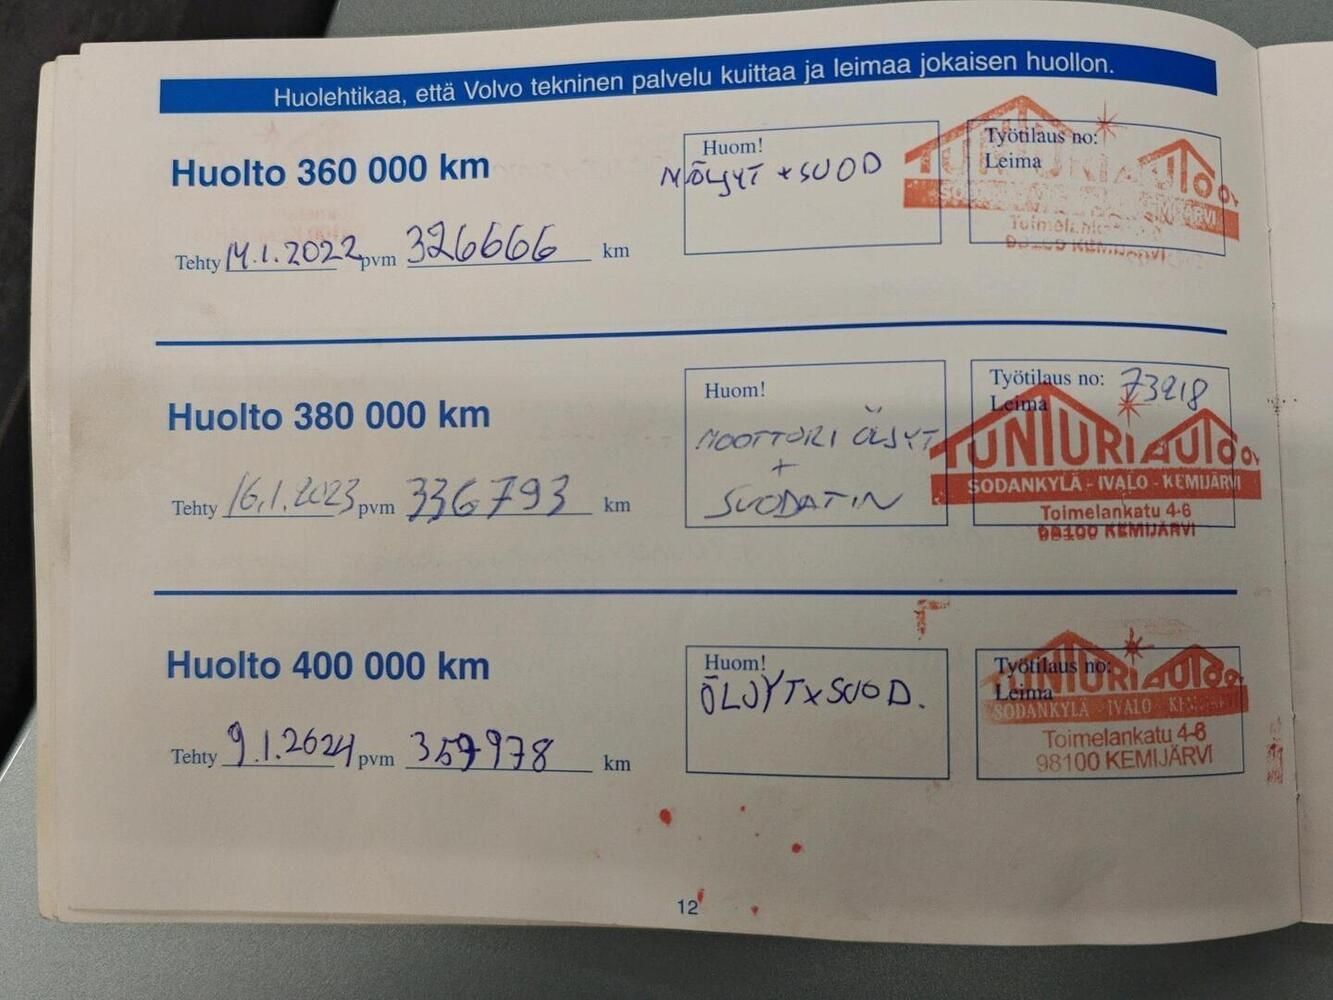 Huolehtikaa, että Volvo tekninen palvelu kuittaa ja leimaa jokaisen huollon.
Huolto 360 000 km
Tehty 14.1.2022 pvm 326666 km
Huom!
MÖLJYT + SUOD
Työtilaus no:
Leima
TUNTURIAUTO OY
KEMIJÄRVI
98100 KEMIJÄRVI
Huolto 380 000 km
Tehty 16.1.2023 pvm 336793 km
Huom!
MOOTTORI ÖLJYT
+
SUODATIN
Työtilaus no: 73218
Leima
TUNTURIAUTO OY
SODANKYLÄ - IVALO - KEMIJÄRVI
Toimelankatu 4-6
98100 KEMIJÄRVI
Huolto 400 000 km
Tehty 9.1.2024 pvm 357978 km
Huom!
ÖLJYT x SUOD.
Työtilaus no:
Leima
TUNTURIAUTO OY
SODANKYLÄ - IVALO - KEMIJÄRVI
Toimelankatu 4-6
98100 KEMIJÄRVI
12